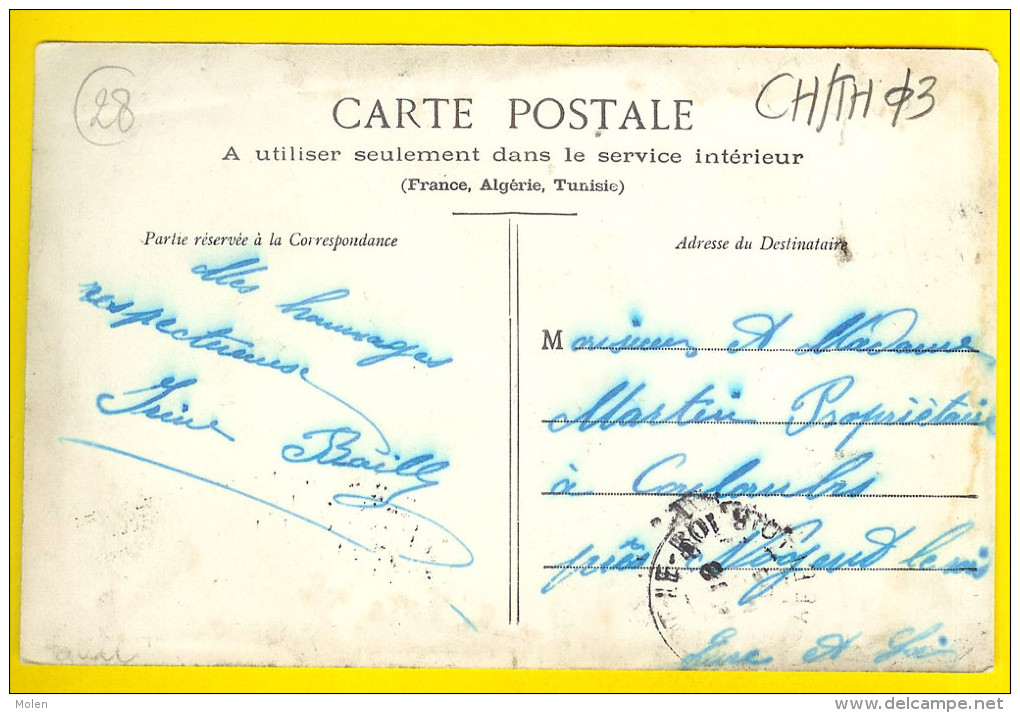 28
CARTE POSTALE
A utiliser seulement dans le service intérieur
(France, Algérie, Tunisie)
Partie réservée à la Correspondance
Mes hommages
respectueux
Bailly
Adresse du Destinataire
Monsieur et Madame
Martin Propriétaire
à
près Nogent le roi
Eure et Loir
Molen
www.delcampe.net